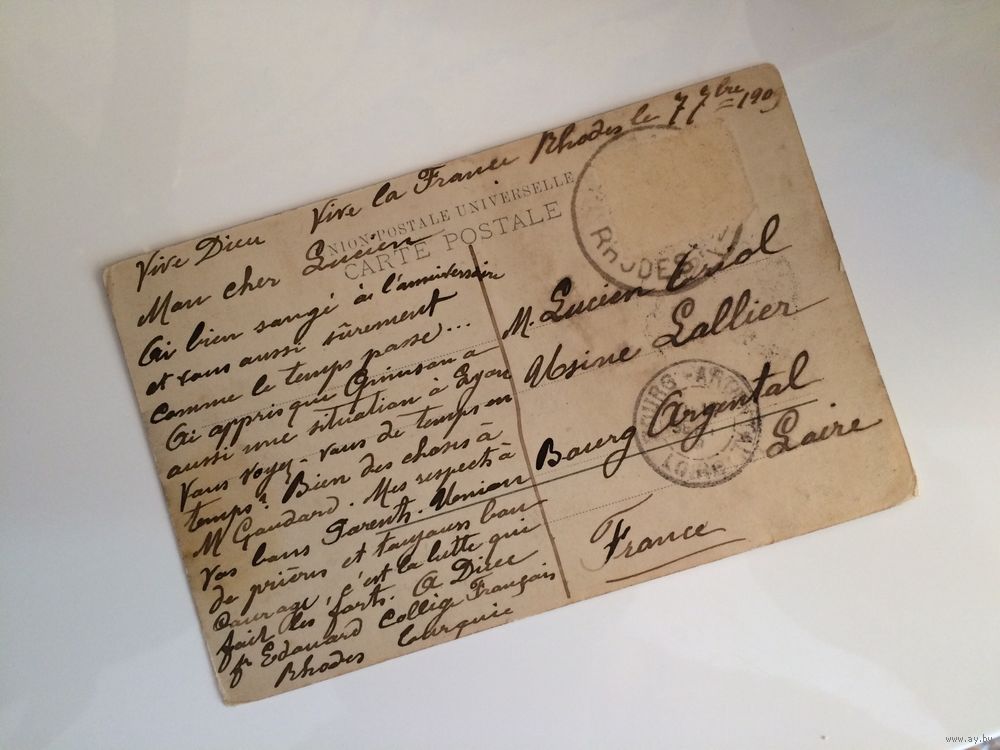 Vive Dieu Vive la France Rhodes le 7 7bre 190
UNION POSTALE UNIVERSELLE
CARTE POSTALE
Mon cher Lucien
Ai bien songé à l'anniversaire
et vous aussi sûrement
comme le temps passe...
Ai appris que à
aussi une situation à Lyon
Vous voyez-vous de temps en
temps? Bien des choses à
M Gaudard. Mes respects à
vos bons Parents. Union
de prières et toujours bon
courage, c'est la lutte qui
fait les forts. A Dieu
fr Edouard Collège Français
Rhodes Turquie
M. Lucien Oriol
Usine Lallier
Bourg Argental
Loire
France
RHODES
BOURG-ARGENTAL
LOIRE
www.ay.by